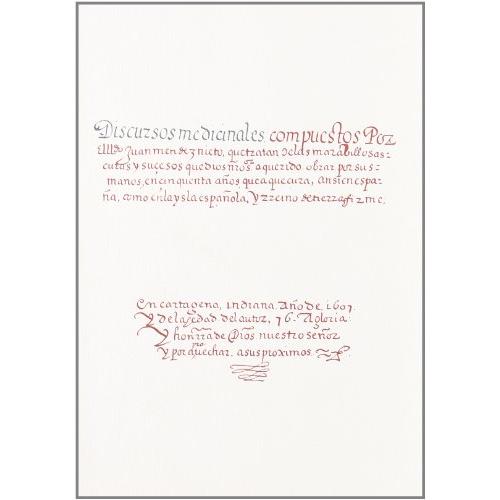 Discursos medicinales, compuestos Por
el Mº Juan mendez nieto, que tratan de las marabillosas
curas y sucesos que dios nro s. a querido obrar por sus
manos, en cinquenta años que a que cura, ansi en espa-
ña, como en la ysla española, y rreino de tierra firme.
En cartagena, indiana. Año de 1607
y de la edad del autor, 76. A gloria
y honrra de Dios nuestro señor
y por aprouechar a sus proximos.